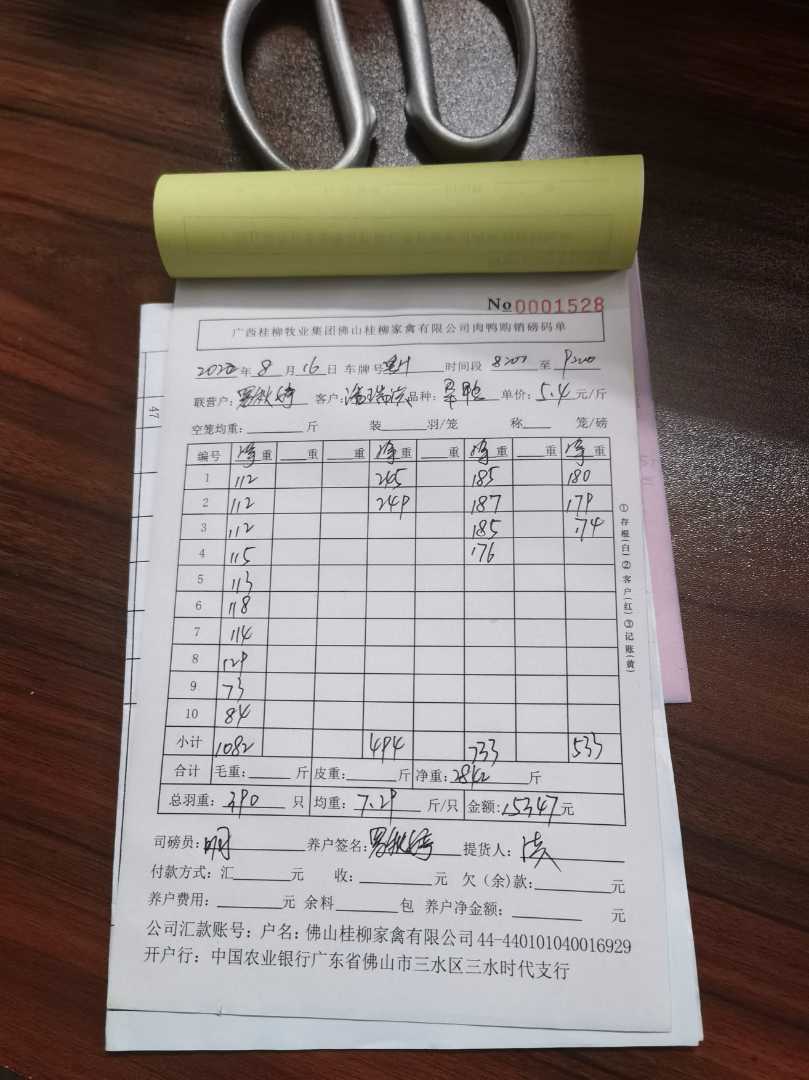 No 0001528
广西桂柳牧业集团佛山桂柳家禽有限公司肉鸭购销磅码单
2020年 8 月 16 日 车牌号 时间段 8:00 至 9:00
联营户: 客户: 品种: 单价: 5.4 元/斤
空笼均重: 斤 装 羽/笼 称 笼/磅
编号 净重 重 重 净重 重 净重 重 净重
1 112 245 185 180
2 112 249 187 179
3 112 185 174
4 115 176
5 113
6 118
7 114
8 129
9 73
10 84
小计 1082 494 733 533
合计 毛重: 斤 皮重: 斤 净重: 2842 斤
总羽重: 390 只 均重: 7.29 斤/只 金额: 15347 元
司磅员: 养户签名: 提货人:
付款方式: 汇 元 收: 元 欠(余)款: 元
养户费用: 元 余料 包 养户净金额: 元
公司汇款账号: 户名: 佛山桂柳家禽有限公司 44-440101040016929
开户行: 中国农业银行广东省佛山市三水区三水时代支行
①存根(白)②客户(红)③记账(黄)
47